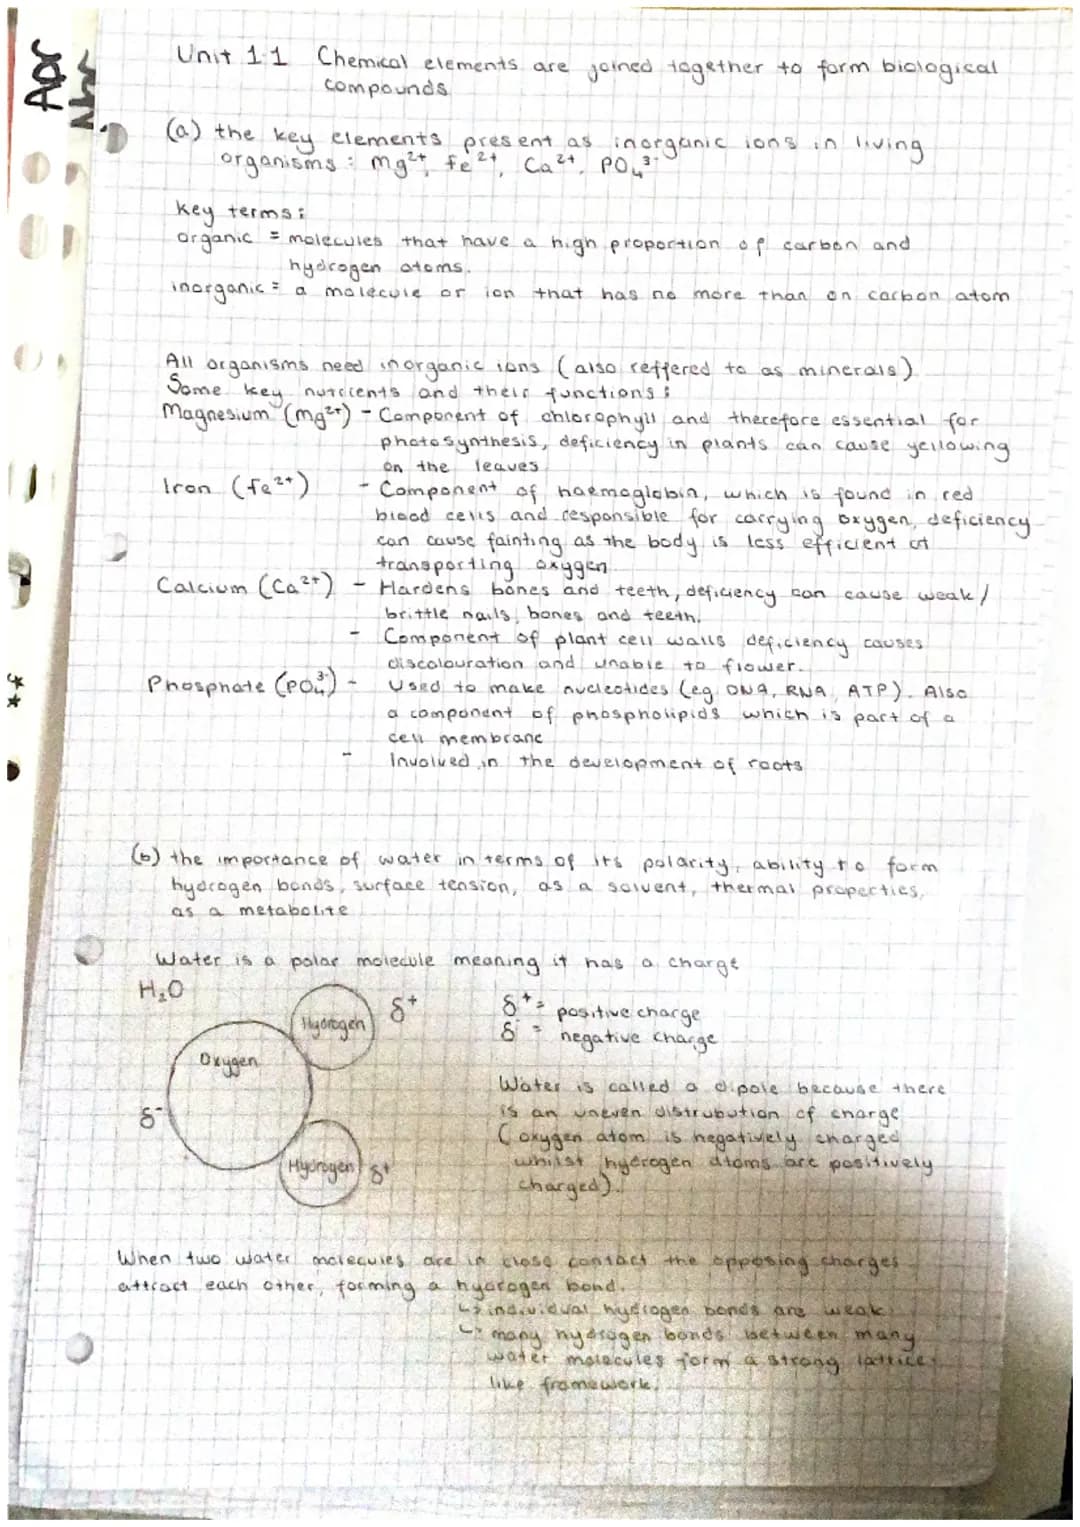 Apr
Unit 1.1 Chemical elements are joined together to form biological
compounds
(a) the key elements present as inorganic ions in living
organisms : Mg²⁺, Fe²⁺, Ca²⁺, PO₄³⁻
Key terms:
organic = molecules that have a high proportion of carbon and
hydrogen atoms.
inorganic = a molecule or ion that has no more than on carbon atom
All organisms need inorganic ions (also reffered to as minerals)
Some key nutrients and their functions:
Magnesium (Mg²⁺) - Component of chlorophyll and therefore essential for
photosynthesis, deficiency in plants can cause yellowing
on the leaves
Iron (Fe²⁺) - Component of haemoglobin, which is found in red
blood cells and responsible for carrying oxygen, deficiency
can cause fainting as the body is less efficient at
transporting oxygen
Calcium (Ca²⁺) - Hardens bones and teeth, deficiency can cause weak/
brittle nails, bones and teeth.
- Component of plant cell walls deficiency causes
discolouration and unable to flower.
Phosphate (PO₄³⁻) - Used to make nucleotides (eg DNA, RNA, ATP). Also
a component of phospholipids which is part of a
cell membrane
- Involved in the development of roots
(b) the importance of water in terms of its polarity, ability to form
hydrogen bonds, surface tension, as a solvent, thermal properties,
as a metabolite
Water is a polar molecule meaning it has a charge
H₂O
Hydrogen δ⁺
Oxygen
δ⁻
Hydrogen δ⁺
δ⁺ = positive charge
δ⁻ = negative charge
Water is called a dipole because there
is an uneven distrubution of charge
(oxygen atom is negatively charged
whilst hydrogen atoms are positively
charged).
When two water molecules are in close contact the opposing charges
attract each other, forming a hydrogen bond.
↳ individual hydrogen bonds are weak
↳ many hydrogen bonds between many
water molecules form a strong lattice
like framework.